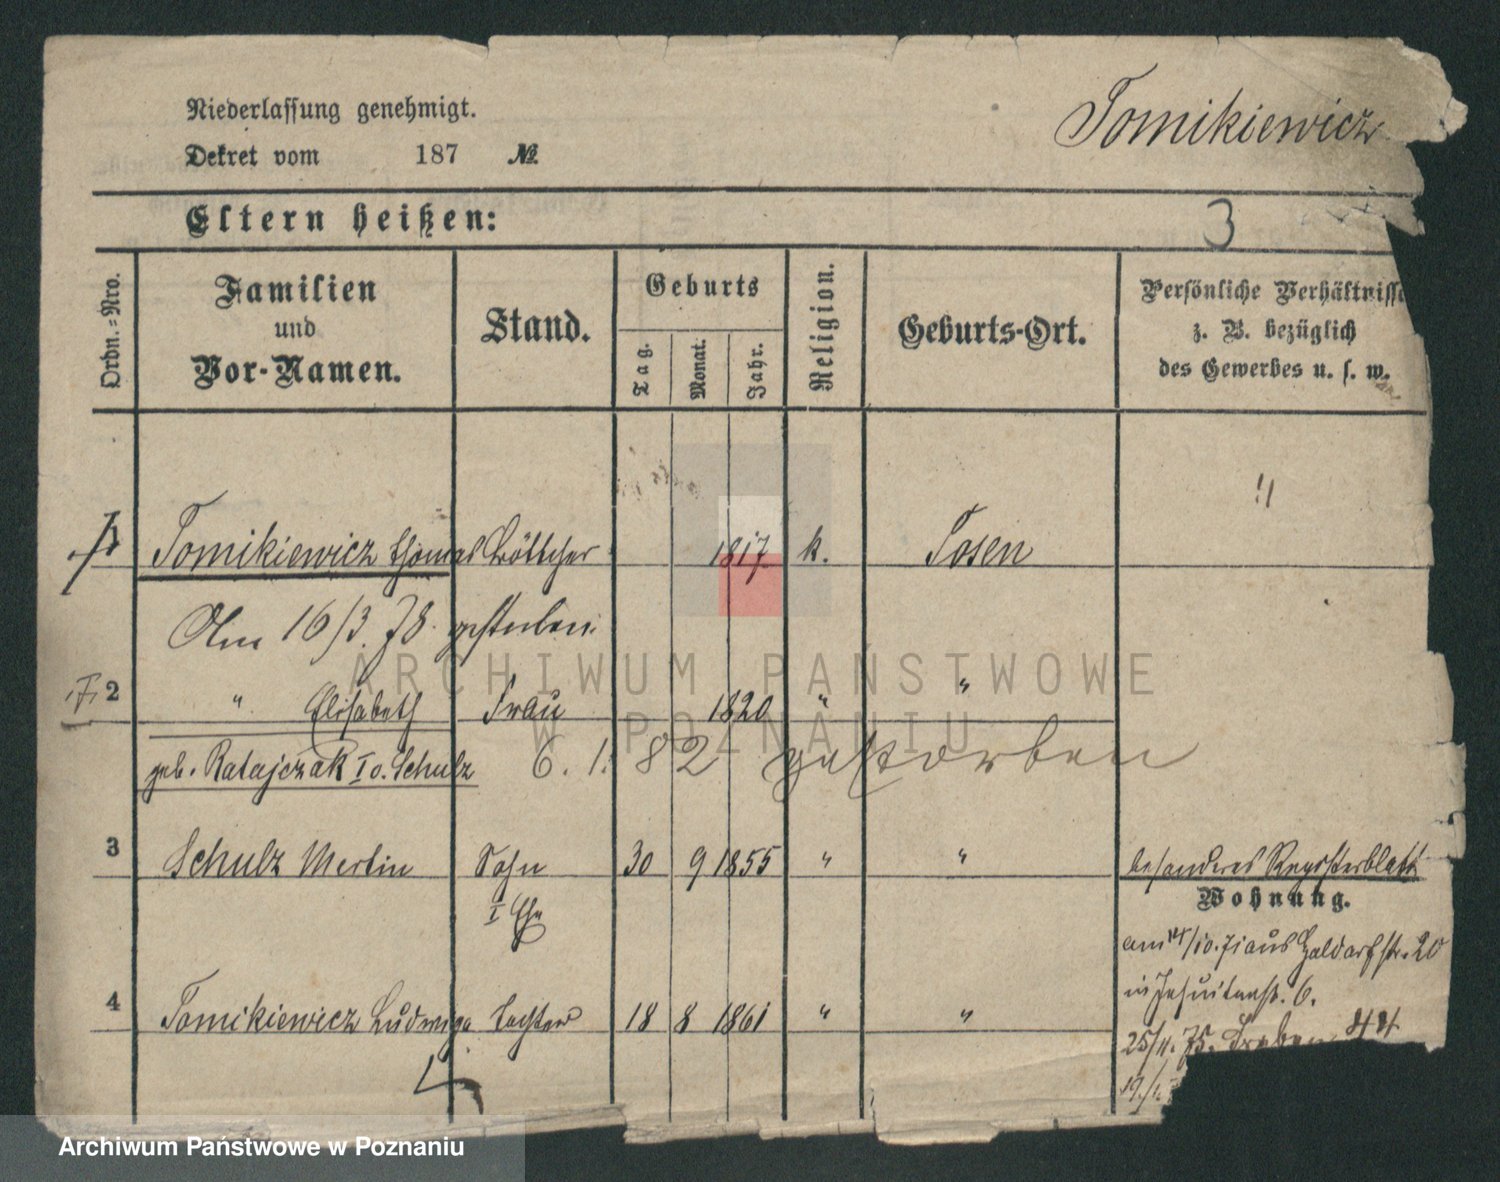 Niederlassung genehmigt.
Tomikiewicz
Dekret vom 187 №
Eltern heißen:
3
Ordn.=Nro.
Familien und Vor-Namen.
Stand.
Geburts
Tag.
Monat.
Jahr.
Religion.
Geburts-Ort.
Persönliche Verhältnisse
z. B. bezüglich
des Gewerbes u. s. w.
1 Tomikiewicz Thomas Böttcher 1817 k. Posen
Am 16/3. 78. gestorben.
2 " Elisabeth Frau 1820 " "
geb. Ratajczak I o. Schulz 6. 1. 82 gestorben
3 Schulz Martin Sohn 30 9 1855 " " besonderes Registerblatt
I Ehe
Wohnung.
am 14/10. 71 aus Halbdorfstr. 20
in Jesuitenstr. 6.
4 Tomikiewicz Ludwiga Tochter 18 8 1861 " "
25/11. 75. Graben 44
19./1.
4
ARCHIWUM PAŃSTWOWE
W POZNANIU
Archiwum Państwowe w Poznaniu